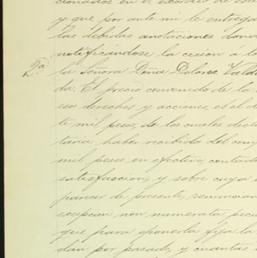 cionados en el
y que por ante mi le entrega
las debidas anotaciones
notificándose la cesion á
2ª. la Señora Doña Dolores Valdé
da. El precio convenido de la
sos derechos y acciones, es el de
te mil pesos, de los cuales decla
taria haber recibido del
mil pesos en efectivo contado
satisfaccion, y sobre cuya
parecer de presente, renuncia
cepcion non numerata pecu
que para oponerla fija la
dan por pasado, y cuantas